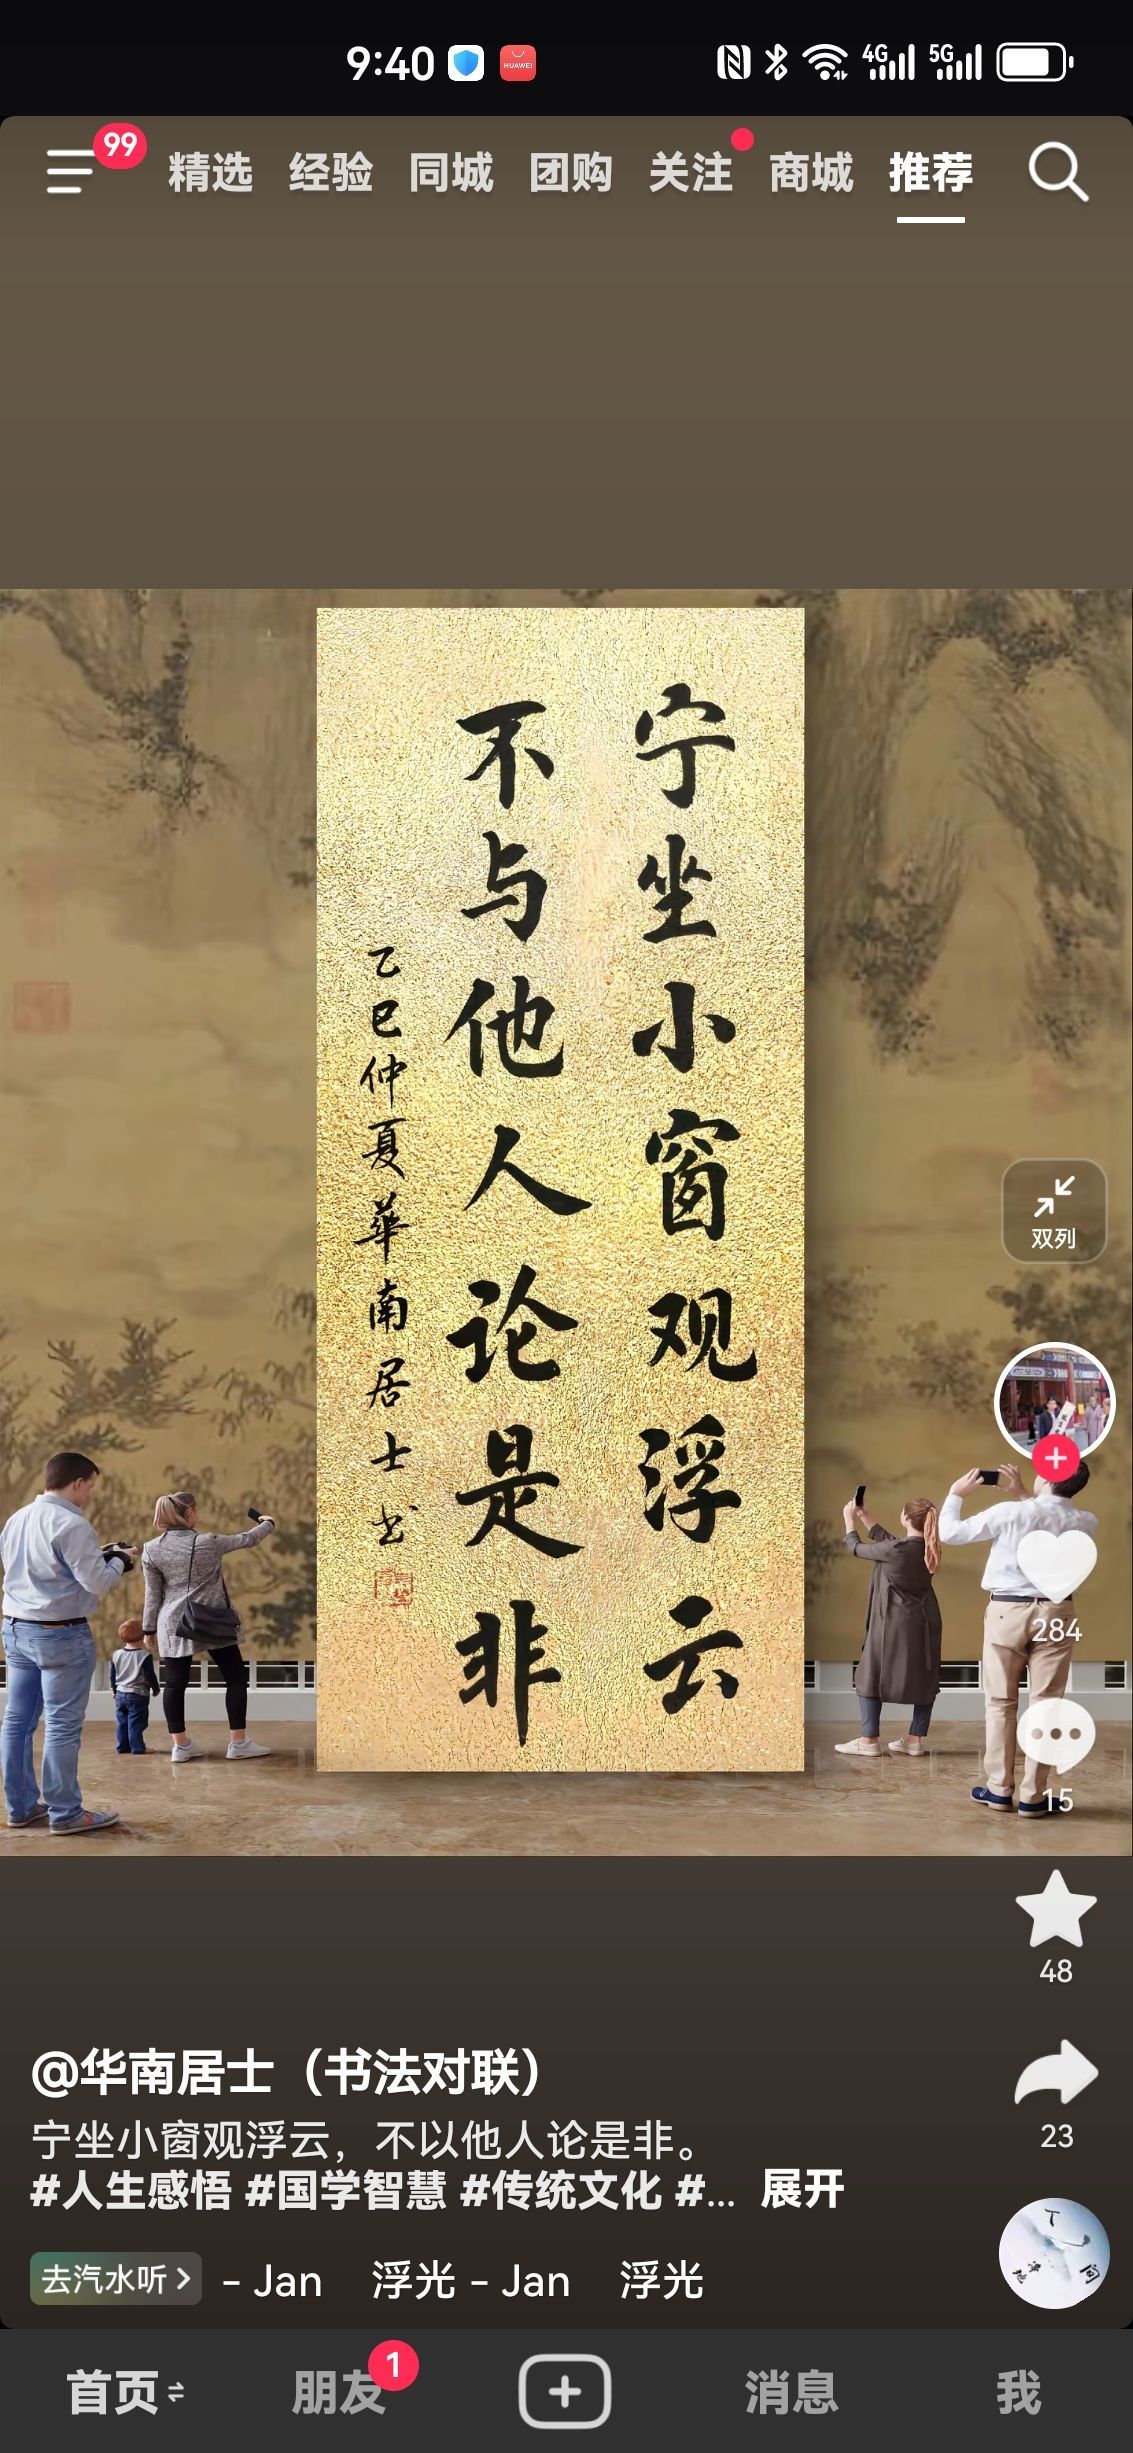 9:40
HUAWEI
4G
5G
99
精选 经验 同城 团购 关注 商城 推荐
宁坐小窗观浮云
不与他人论是非
乙巳仲夏華南居士书
双列
284
15
48
23
@华南居士（书法对联）
宁坐小窗观浮云，不以他人论是非。
#人生感悟 #国学智慧 #传统文化 #... 展开
去汽水听 - Jan 浮光 - Jan 浮光
首页 朋友 1 消息 我